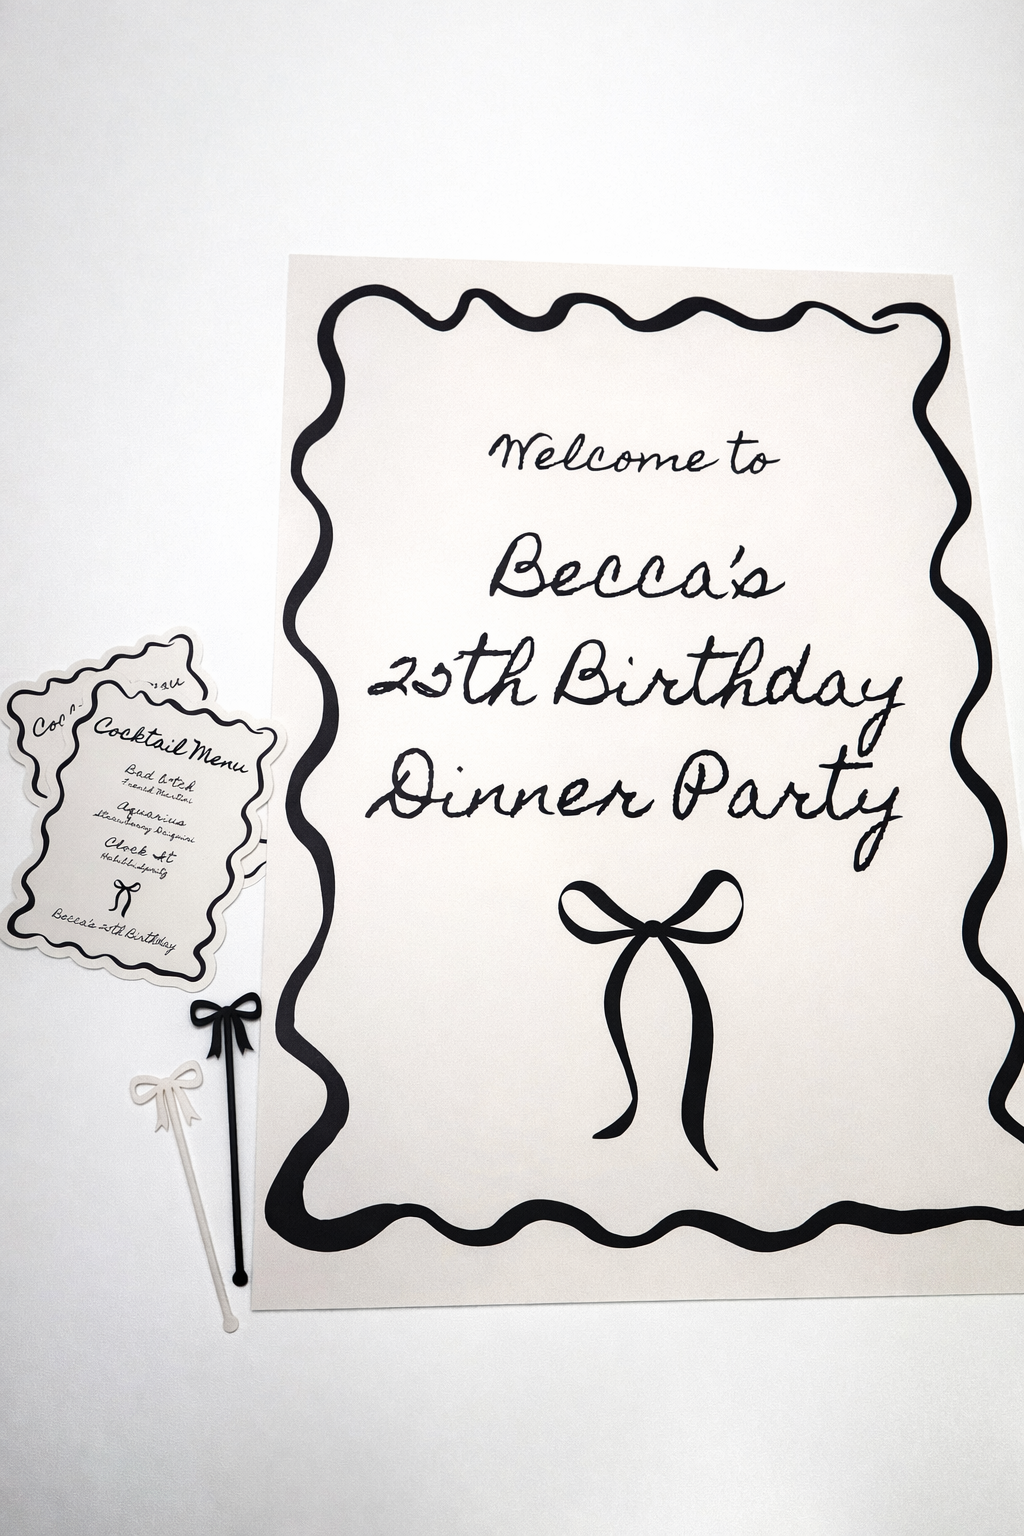 Welcome to
Becca's
25th Birthday
Dinner Party
Cocktail Menu
Bad
French Martini
Aquarius
Strawberry Daiquiri
Clock It
Becca's 25th Birthday